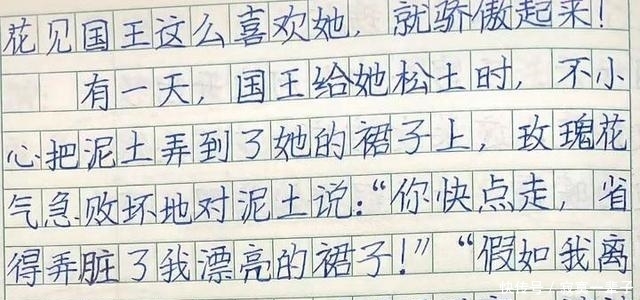 花见国王这么喜欢她，就骄傲起来！
有一天，国王给她松土时，不小
心把泥土弄到了她的裙子上，玫瑰花
气急败坏地对泥土说：“你快点走，省
得弄脏了我漂亮的裙子！”“假如我离